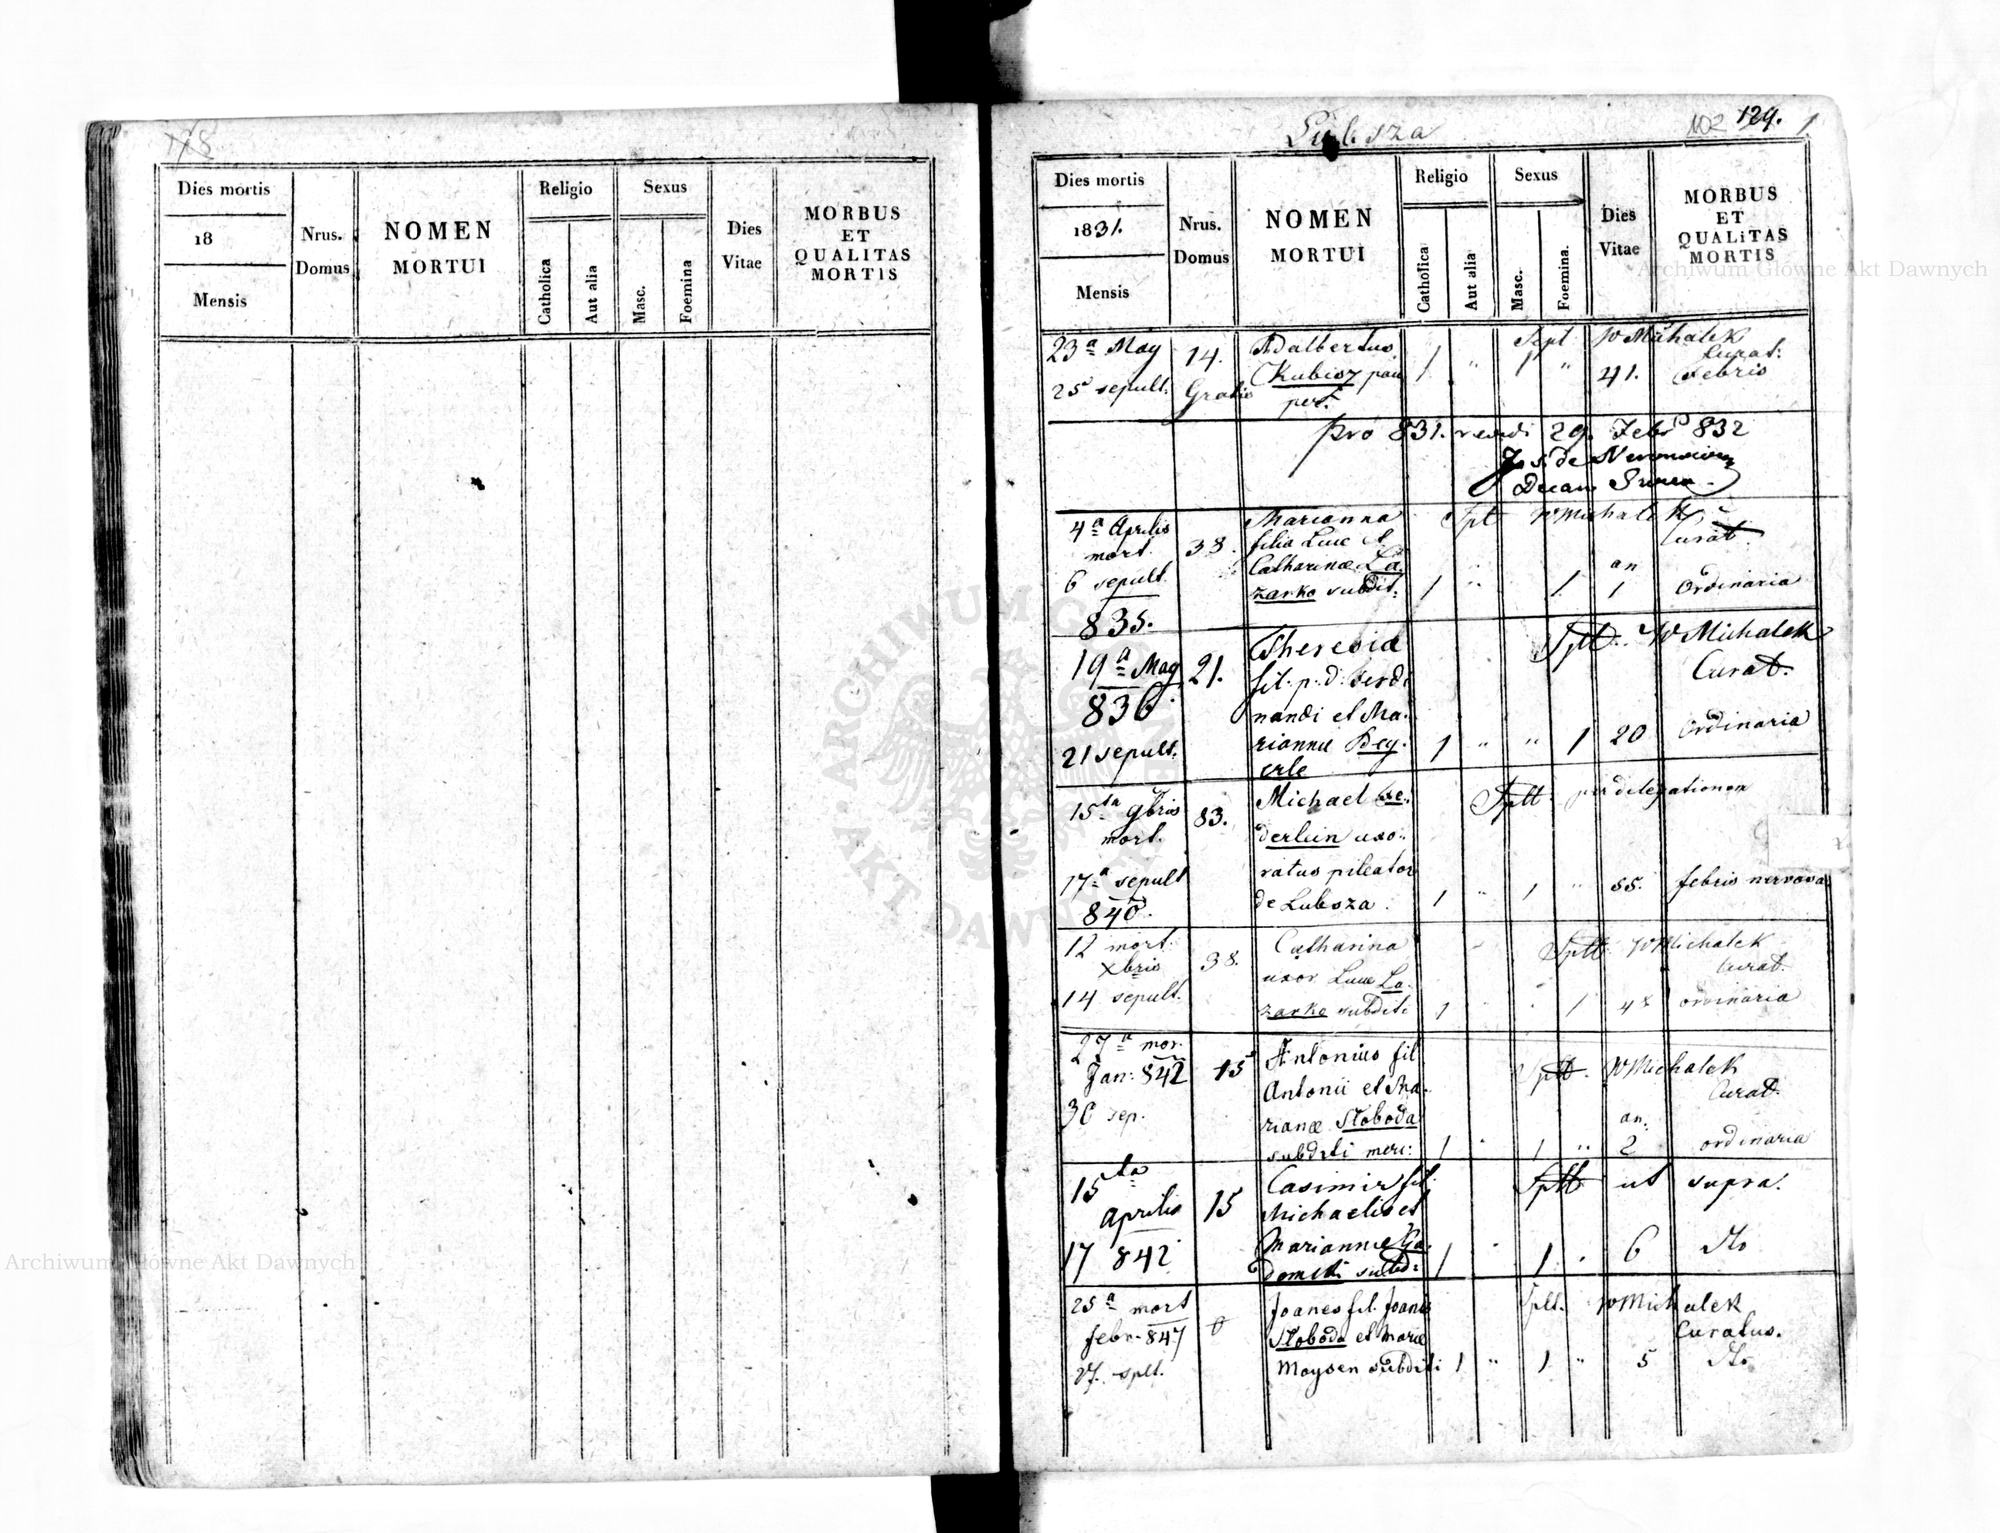 178
Dies mortis
18
Mensis
Nrus.
Domus
NOMEN
MORTUI
Religio
Catholica
Aut alia
Sexus
Masc.
Foemina
Dies
Vitae
MORBUS
ET
QUALITAS
MORTIS
Lubsza
102 129. 1
Dies mortis
1831.
Mensis
Nrus.
Domus
NOMEN
MORTUI
Religio
Catholica
Aut alia
Sexus
Masc.
Foemina.
Dies
Vitae
MORBUS
ET
QUALiTAS
MORTIS
23a May 14. Adalbertus Sept W Michalek
Curat:
25 sepult: Gratis Kubisz pau 1 " 1 " 41. febris
per.
pro 831. 29. Febr 832
Jos. de
Decan
4a Aprilis Marianna Splt W Michalek
mort. 38. filia Luc et Curat.
6 sepult Catharinæ La an
zarko subdit: 1 " 1 1 Ordinaria
835.
19a May 21. Theresia Splt. W Michalek
fil: p: d: ferdi Curat.
836 nandi et Ma.
21 sepult. riannæ Bey. 1 " " 1 20 Ordinaria
erle
15ta 9bris 83. Michael Splt per delegationem
mort. derlein uxo:
17a sepult ratus pileator 55. febris nervosa
840. de Lubsza. 1 " 1 "
12 mort. 38. Catharina Splt W Michalek
Xbris uxor Lucæ La. Curat.
14 sepult. zarko subditi 1 1 ordinaria
27a mor. Antonius fil
Jan: 842 15 Antonii et Ma. Splt. W Michalek
Curat.
30 sep. rianæ Sloboda an.
subditi 1 " 1 " 2 ordinaria
15ta Casimir fil. Splt ut supra.
Aprilis 15 Michaelis et
17 842 Mariannæ Ga. 1 " 1 . 6 dto
domski subd:
25a mort Joanes fil. Joanis Splt. W Michalek
febr. 847 Sloboda et Mariæ Curatus.
27. splt. Moysen subditi 1 " 1 " 5 dto
ARCHIWUM GŁÓWNE AKT DAWNYCH
Archiwum Główne Akt Dawnych
Archiwum Główne Akt Dawnych